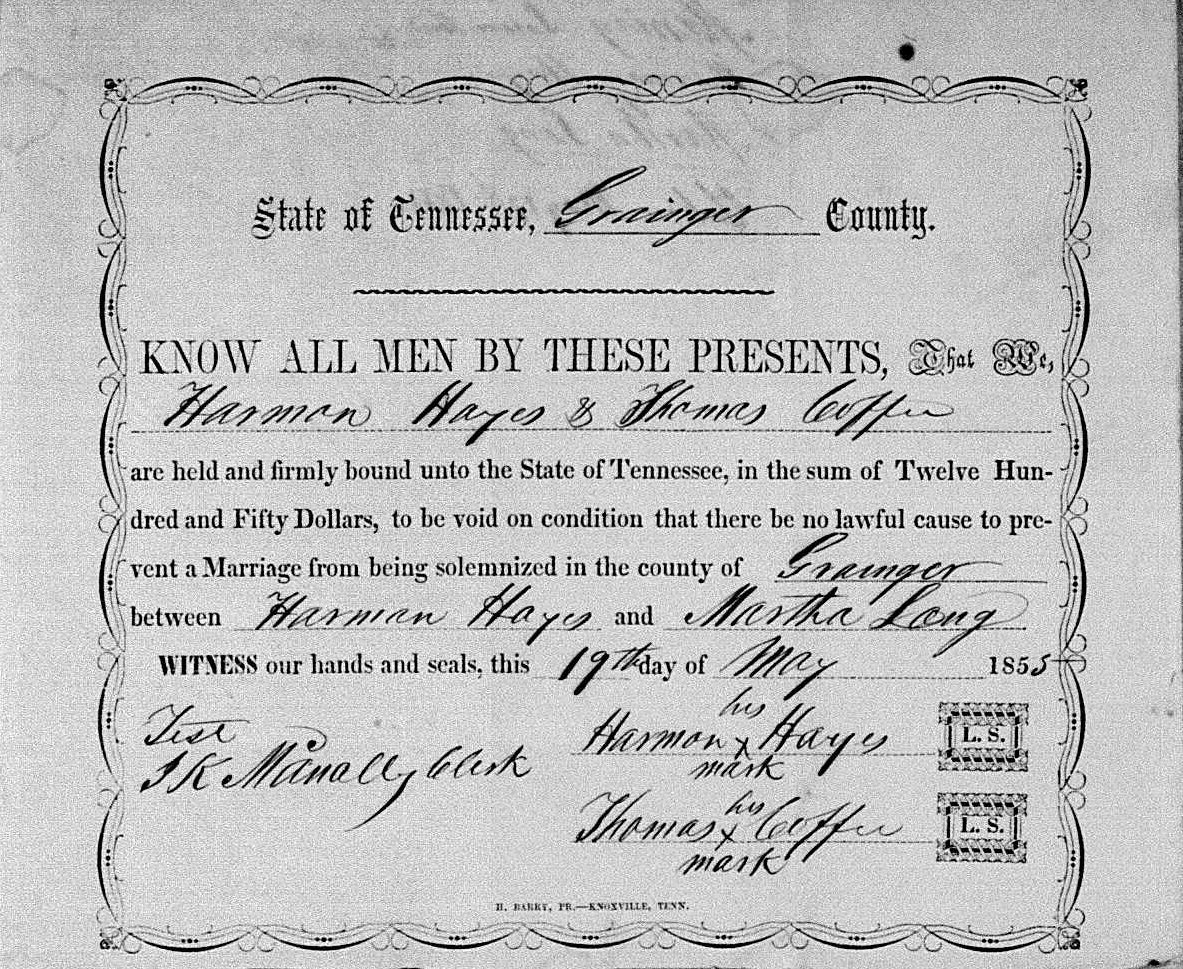 State of Tennessee, Grainger County.
KNOW ALL MEN BY THESE PRESENTS, That We,
Harmon Hayes & Thomas Coffee
are held and firmly bound unto the State of Tennessee, in the sum of Twelve Hun-
dred and Fifty Dollars, to be void on condition that there be no lawful cause to pre-
vent a Marriage from being solemnized in the county of Grainger
between Harman Hayes and Martha Long
WITNESS our hands and seals, this 19th day of May 1855
his
Test Harmon x Hayes L. S.
J K McAnally Clerk mark
his
Thomas x Coffee L. S.
mark
H. BARRY, PR.—KNOXVILLE, TENN.